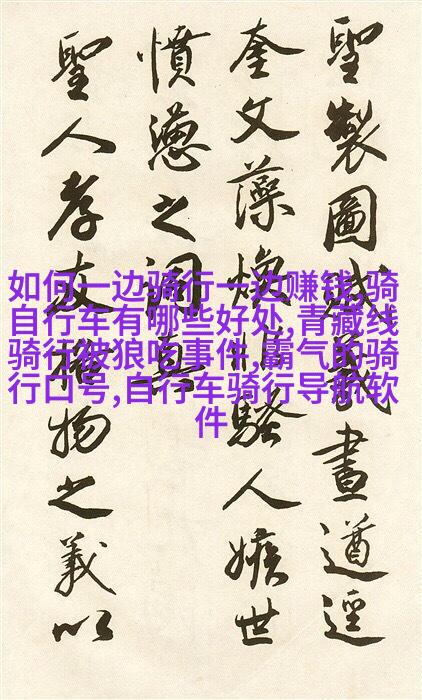 聖製圖賦義畫遒逕
奎文藻煥非騷人嫉世
憤懣之詞
聖人孝友植物之義以
如何一边骑行一边赚钱,骑
自行车有哪些好处,青藏线
骑行被狼吃事件,霸气的骑
行口号,自行车骑行导航软
件